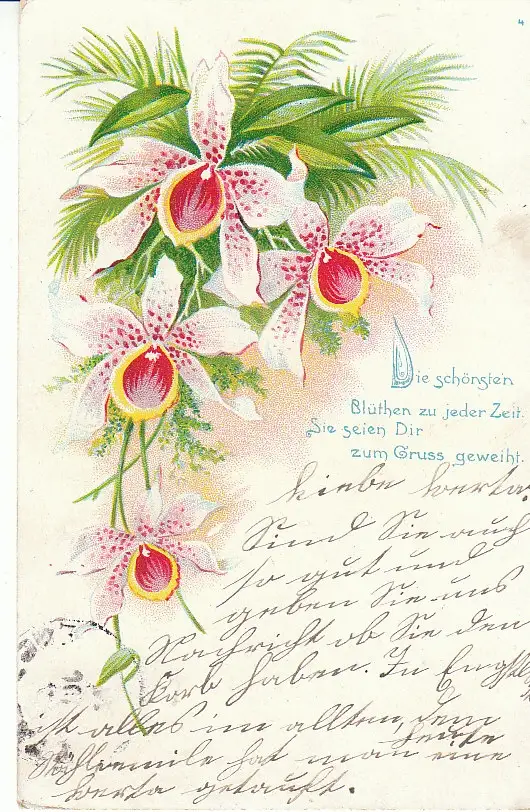 4
Die schönsten
Blüthen zu jeder Zeit.
Sie seien Dir
zum Gruss geweiht.
Liebe Berta!
Sind Sie auch
so gut und
geben Sie uns
Nachricht ob Sie den
Korb haben. In
ist alles im allten, dem
heute
hat man eine
Berta getauft.